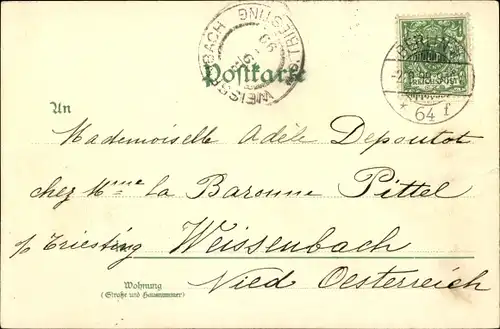 WEISSENBACH a.d. TRIESTING
99
BERLIN
REICHSPOST
* 64 f
Postkarte
An
Mademoiselle Adèle Depoutot
chez Mme la Baronne Pittel
p/ Triesting Weissenbach
Nied Oesterreich
Wohnung
(Straße und Hausnummer)